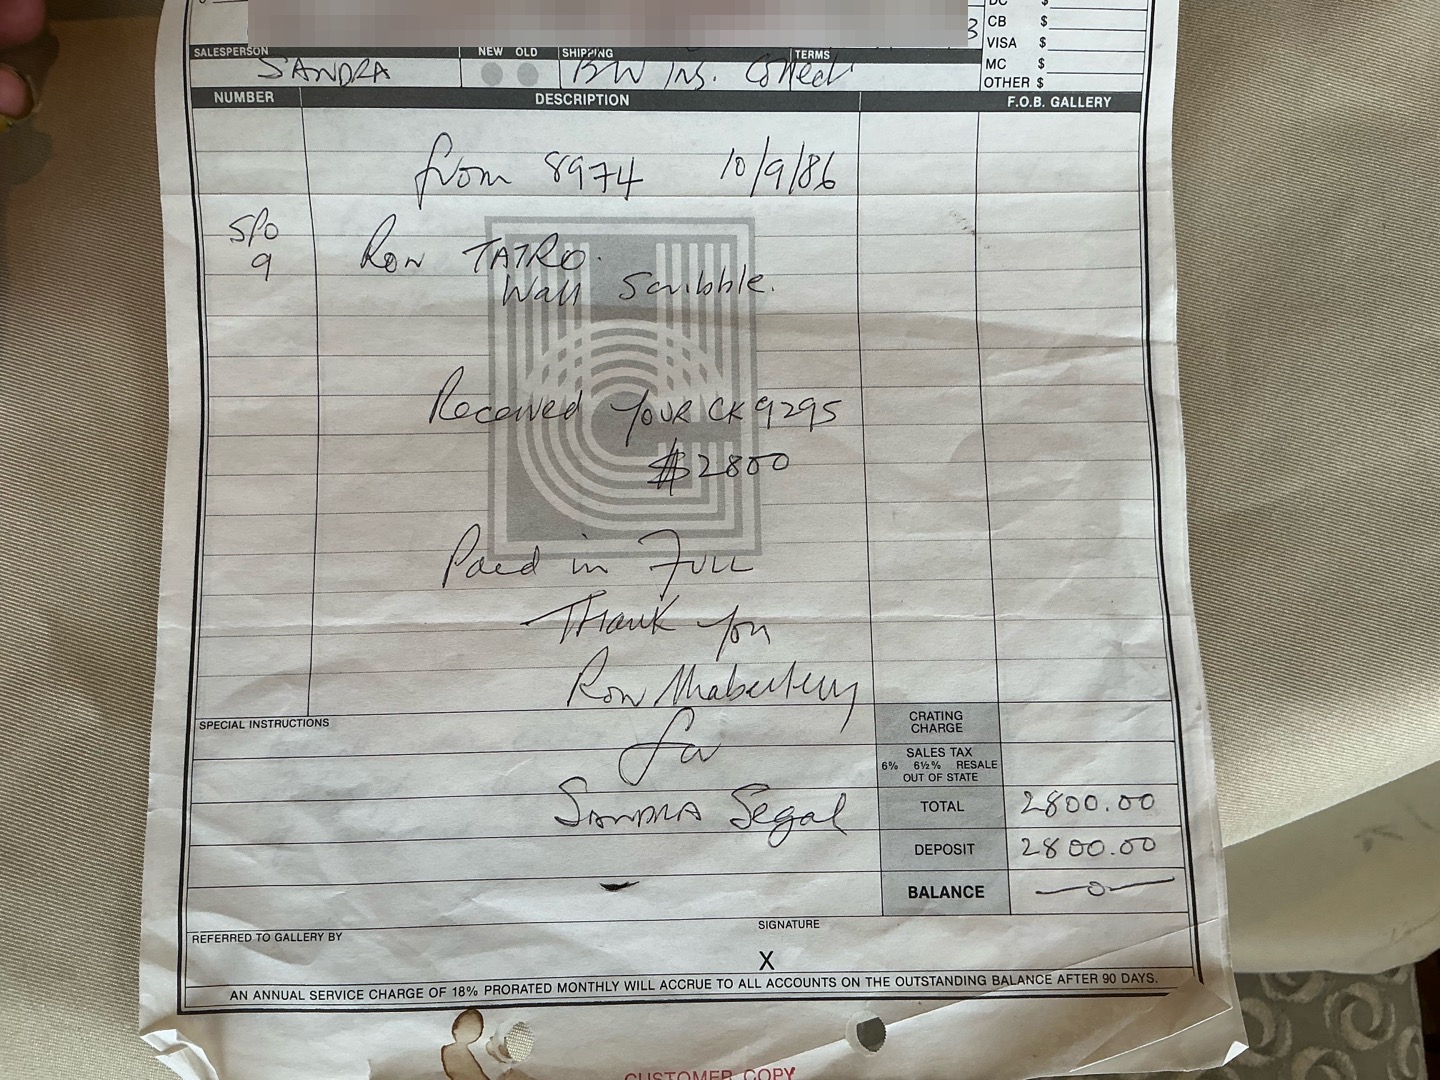 DC $
CB $
3
VISA $
MC $
OTHER $
SALESPERSON NEW OLD SHIPPING TERMS
SANDRA BW Ins.
NUMBER DESCRIPTION F.O.B. GALLERY
from 8974 10/9/86
SPO
9
Ron TATRO.
Wall Scribble.
Received your CK 9295
$2800
Paid in Full
Thank you
Ron
for
SANDRA Segal
SPECIAL INSTRUCTIONS
CRATING
CHARGE
SALES TAX
6% 6½% RESALE
OUT OF STATE
TOTAL 2800.00
DEPOSIT 2800.00
BALANCE —0—
REFERRED TO GALLERY BY
SIGNATURE
X
AN ANNUAL SERVICE CHARGE OF 18% PRORATED MONTHLY WILL ACCRUE TO ALL ACCOUNTS ON THE OUTSTANDING BALANCE AFTER 90 DAYS.
CUSTOMER COPY